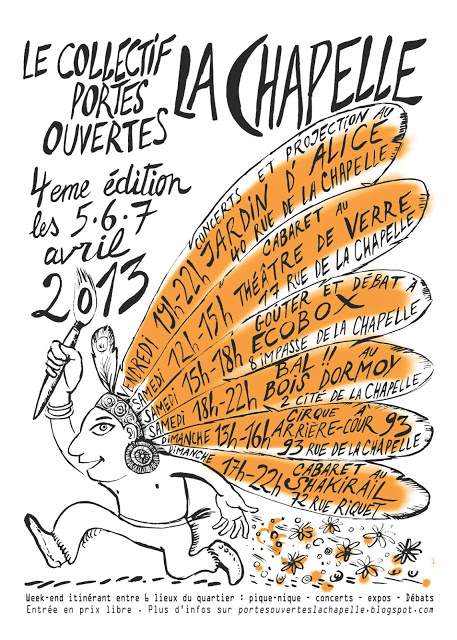 LE COLLECTIF
PORTES
OUVERTES
LA CHAPELLE
4eme édition
les 5.6.7
avril
2013
VENDREDI 19h-22h CONCERTS ET PROJECTION AU
JARDIN D'ALICE
40 RUE DE LA CHAPELLE
SAMEDI 12h-15h CABARET AU
THÉÂTRE DE VERRE
17 RUE DE LA CHAPELLE
SAMEDI 15h-18h GOUTER ET DÉBAT À
ECOBOX
8 IMPASSE DE LA CHAPELLE
SAMEDI 18h-22h BAL !! AU
BOIS DORMOY
2 CITÉ DE LA CHAPELLE
DIMANCHE 15h-16h CIRQUE À
ARRIÈRE-COUR 93
93 RUE DE LA CHAPELLE
DIMANCHE 17h-22h CABARET AU
SHAKIRAIL
72 RUE RIQUET
Week-end itinérant entre 6 lieux du quartier : pique-nique - concerts - expos - Débats
Entrée en prix libre . Plus d'infos sur portesouverteslachapelle.blogspot.com